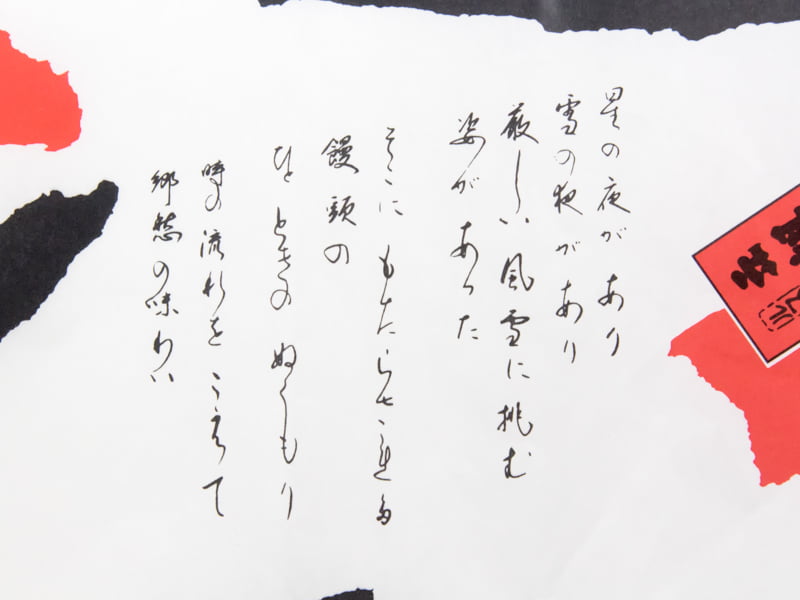 星の夜があり
雪の夜があり
厳しい風雪に挑む
姿があった
そこにもたらせる
饅頭の
ひとときのぬくもり
時の流れをこえて
郷愁の味わい